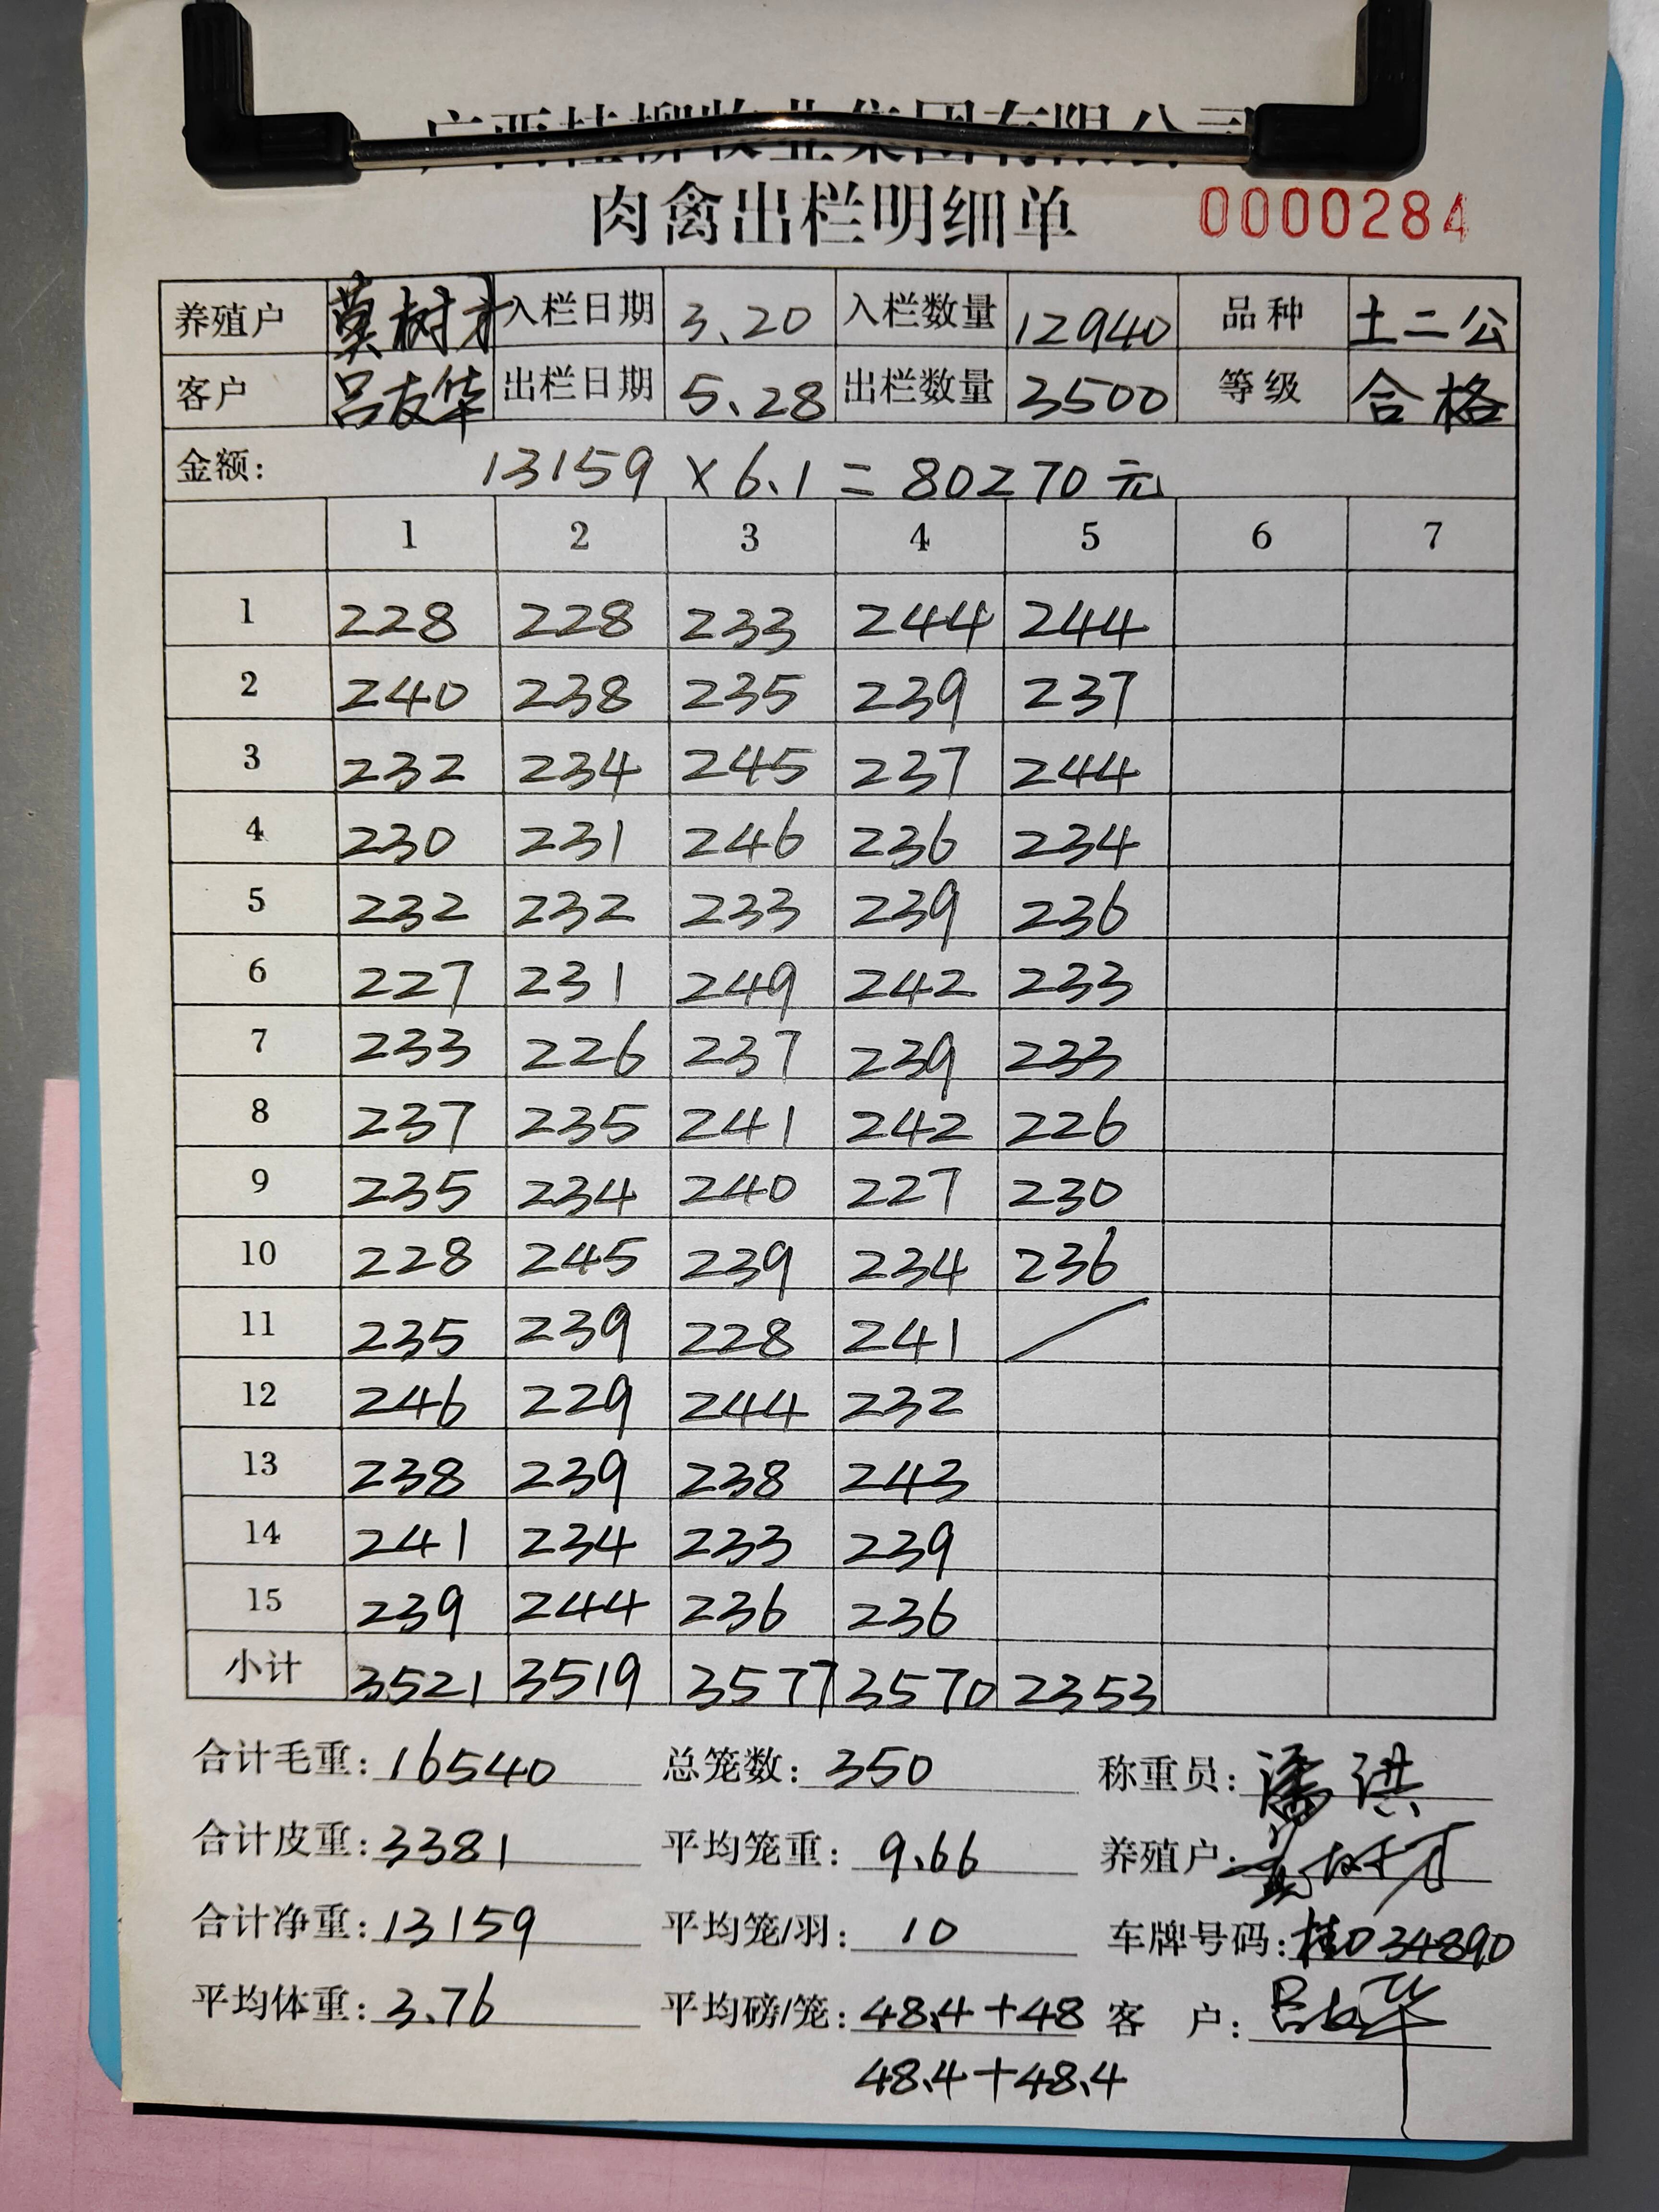 广西桂柳牧业集团有限公司
肉禽出栏明细单 0000284
养殖户 莫树才 入栏日期 3.20 入栏数量 12940 品种 土二公
客户 吕友华 出栏日期 5.28 出栏数量 3500 等级 合格
金额: 13159 × 6.1 = 80270 元
1 2 3 4 5 6 7
1 228 228 233 244 244
2 240 238 235 239 237
3 232 234 245 237 244
4 230 231 246 236 234
5 232 232 233 239 236
6 227 231 249 242 233
7 233 226 237 239 233
8 237 235 241 242 226
9 235 234 240 227 230
10 228 245 239 234 236
11 235 239 228 241
12 246 229 244 232
13 238 239 238 243
14 241 234 233 239
15 239 244 236 236
小计 3521 3519 3577 3570 2353
合计毛重: 16540 总笼数: 350 称重员: 潘洪
合计皮重: 3381 平均笼重: 9.66 养殖户: 莫树才
合计净重: 13159 平均笼/羽: 10 车牌号码: 桂D34890
平均体重: 3.76 平均磅/笼: 48.4+48 客 户: 吕友华
48.4+48.4